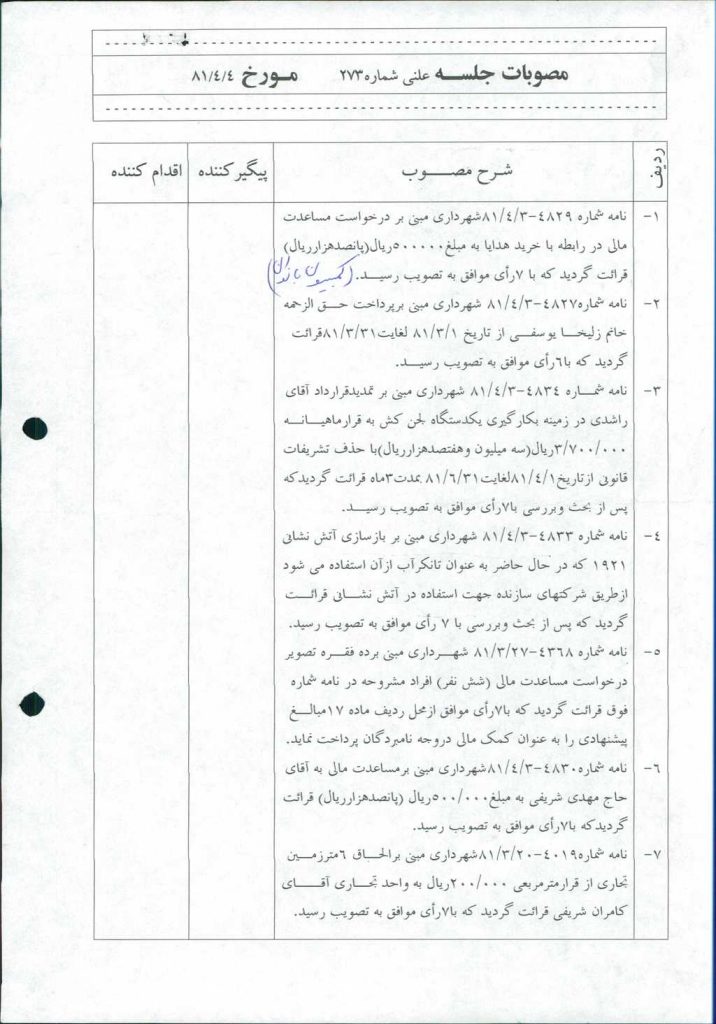 مصوبات جلسه علنی شماره ۲۷۳ مورخ ۸۱/٤/٤
ردیف شرح مصوب پیگیرکننده اقدام کننده
۱- نامه شماره ٤۸۲۹-۸۱/٤/۳شهرداری مبنی بر درخواست مساعدت
مالی در رابطه با خرید هدایا به مبلغ ۵۰۰۰۰۰ریال(پانصدهزارریال)
قرائت گردید که با ۷رأی موافق به تصویب رسید. (کمیسیون بانوان)
۲- نامه شماره٤۸۲۷-۸۱/٤/۳ شهرداری مبنی برپرداخت حق الزحمه
خانم زلیخا یوسفی از تاریخ ۸۱/۳/۱ لغایت۸۱/۳/۳۱قرائت
گردید که با٦رأی موافق به تصویب رسید.
۳- نامه شماره ٤۸۳٤-۸۱/٤/۳ شهرداری مبنی بر تمدیدقرارداد آقای
راشدی در زمینه بکارگیری یکدستگاه لجن کش به قرارماهیانه
۳/۷۰۰/۰۰۰ریال(سه میلیون وهفتصدهزارریال)با حذف تشریفات
قانونی ازتاریخ۸۱/٤/۱لغایت۸۱/٦/۳۱ بمدت۳ماه قرائت گردیدکه
پس از بحث وبررسی با۷رأی موافق به تصویب رسید.
٤- نامه شماره ٤۸۳۳-۸۱/٤/۳ شهرداری مبنی بر بازسازی آتش نشانی
۱۹۲۱ که در حال حاضر به عنوان تانکرآب ازآن استفاده می شود
ازطریق شرکتهای سازنده جهت استفاده در آتش نشانی قرائت
گردید که پس از بحث وبررسی با ۷ رأی موافق به تصویب رسید.
۵- نامه شماره ٤۳٦۸-۸۱/۳/۲۷ شهرداری مبنی برده فقره تصویر
درخواست مساعدت مالی (شش نفر) افراد مشروحه در نامه شماره
فوق قرائت گردید که با۷رأی موافق ازمحل ردیف ماده ۱۷مبالغ
پیشنهادی را به عنوان کمک مالی دروجه نامبردگان پرداخت نماید.
٦- نامه شماره ٤۸۳۰-۸۱/٤/۳شهرداری مبنی برمساعدت مالی به آقای
حاج مهدی شریفی به مبلغ۵۰۰/۰۰۰ریال (پانصدهزارریال) قرائت
گردیدکه با۷رأی موافق به تصویب رسید.
۷- نامه شماره٤۰۱۹-۸۱/۳/۲۰شهرداری مبنی برالحاق ٦مترزمین
تجاری از قرارمترمربعی ۲۰۰/۰۰۰ریال به واحد تجاری آقای
کامران شریفی قرائت گردید که با۷رأی موافق به تصویب رسید.